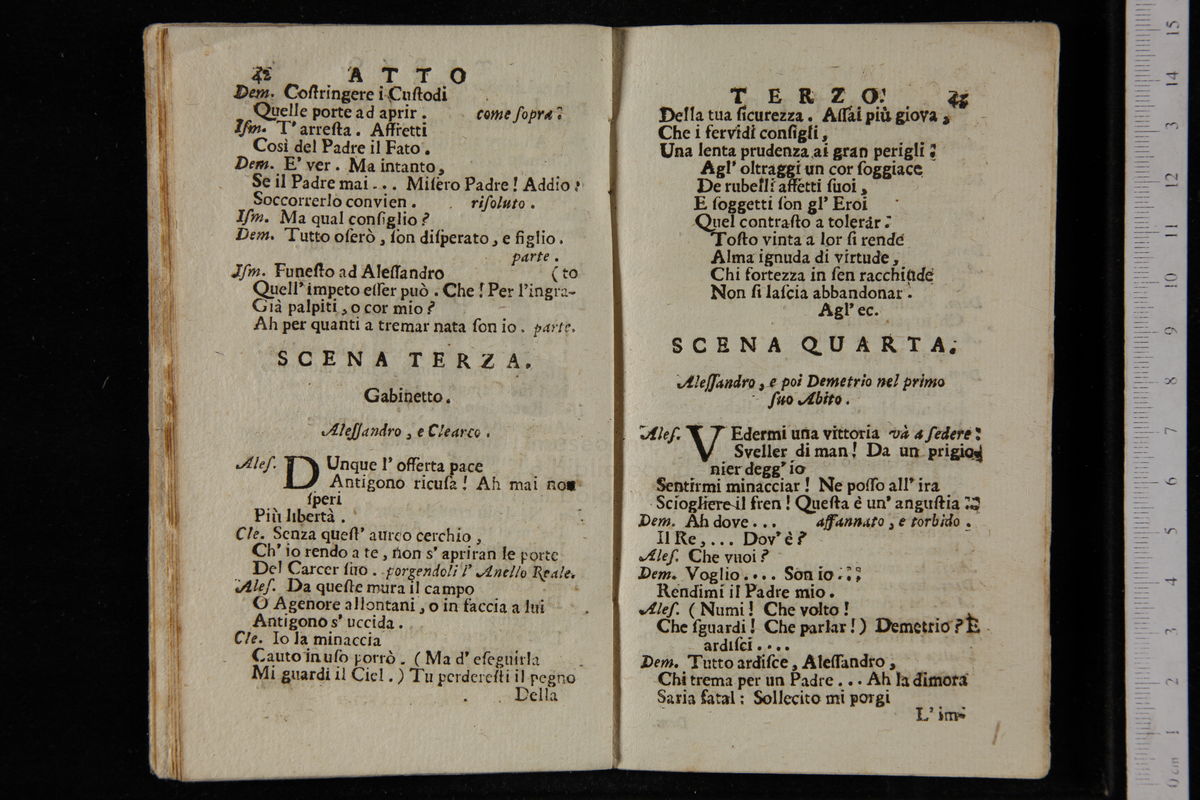 42 ATTO
Dem. Coſtringere i Cuſtodi
Quelle porte ad aprir. come ſopra.
Iſm. T' arreſta. Affretti
Così del Padre il Fato.
Dem. E' ver. Ma intanto,
Se il Padre mai... Miſero Padre! Addio.
Soccorrerlo convien. riſoluto.
Iſm. Ma qual conſiglio?
Dem. Tutto oſerò, ſon diſperato, e figlio.
parte.
Iſm. Funeſto ad Aleſſandro (to
Quell' impeto eſſer può. Che! Per l'ingra-
Già palpiti, o cor mio?
Ah per quanti a tremar nata ſon io. parte.
SCENA TERZA.
Gabinetto.
Aleſſandro, e Clearco.
Aleſ. DUnque l' offerta pace
Antigono ricuſa! Ah mai non
ſperi
Più libertà.
Cle. Senza queſt' aureo cerchio,
Ch' io rendo a te, non s' apriran le porte
Del Carcer ſuo. porgendoli l' Anello Reale.
Aleſ. Da queſte mura il campo
O Agenore allontani, o in faccia a lui
Antigono s' uccida.
Cle. Io la minaccia
Cauto in uſo porrò. (Ma d' eſeguirla
Mi guardi il Ciel.) Tu perdereſti il pegno
Della
TERZO.
Della tua ſicurezza. Aſſai più giova,
Che i fervidi conſigli,
Una lenta prudenza ai gran perigli.
Agl' oltraggi un cor ſoggiace
De rubelli affetti ſuoi,
E ſoggetti ſon gl' Eroi
Quel contraſto a tolerar.
Toſto vinta a lor ſi rende
Alma ignuda di virtude,
Chi fortezza in ſen racchiude
Non ſi laſcia abbandonar.
Agl' ec.
SCENA QUARTA.
Aleſſandro, e poi Demetrio nel primo
ſuo Abito.
Aleſ. VEdermi una vittoria và a ſedere.
Sveller di man! Da un prigio-
nier degg' io
Sentirmi minacciar! Ne poſſo all' ira
Sciogliere il fren! Queſta è un' anguſtia..
Dem. Ah dove... affannato, e torbido.
Il Re,... Dov' è?
Aleſ. Che vuoi?
Dem. Voglio.... Son io...
Rendimi il Padre mio.
Aleſ. (Numi! Che volto!
Che ſguardi! Che parlar!) Demetrio? E
ardiſci....
Dem. Tutto ardiſce, Aleſſandro,
Chi trema per un Padre... Ah la dimora
Saria fatal: Sollecito mi porgi
L' im-